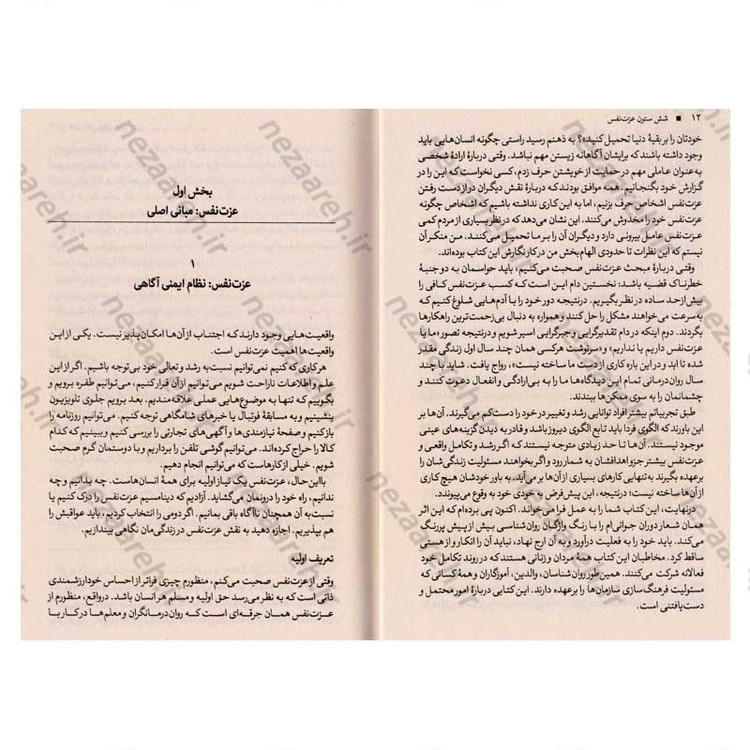 ۱۲ ■ شش ستون عزت‌نفس
خودتان را بر بقیهٔ دنیا تحمیل کنید»؟ به ذهنم رسید راستی چگونه انسان‌هایی باید
وجود داشته باشند که برایشان آگاهانه زیستن مهم نباشد. وقتی دربارهٔ ارادهٔ شخصی
به‌عنوان عاملی مهم در حمایت از خویشتن حرف زدم، کسی نخواست این را در
گزارش خود بگنجانیم. همه موافق بودند که دربارهٔ نقش دیگران در از دست رفتن
عزت‌نفس اشخاص حرف بزنیم، اما به این کاری نداشته باشیم که اشخاص چگونه
عزت‌نفس خود را مخدوش می‌کنند. این نشان می‌دهد که در نظر بسیاری از مردم کمی
عزت‌نفس عامل بیرونی دارد و دیگران آن را بر ما تحمیل می‌کنند. من منکر آن
نیستم که این نظرات تا حدودی الهام‌بخش من در کار نگارش این کتاب بوده‌اند.
وقتی دربارهٔ مبحث عزت‌نفس صحبت می‌کنیم، باید حواسمان به دو جنبهٔ
خطرناک قضیه باشد: نخستین دام این است که کسب عزت‌نفس کافی را
بیش از حد ساده در نظر بگیریم. در نتیجه دور خود را با آدم‌هایی شلوغ کنیم که
به‌سرعت می‌خواهند مشکل را حل کنند و همواره به دنبال بی‌زحمت‌ترین راهکارها
بگردند. دوم اینکه در دام تقدیرگرایی و جبرگرایی اسیر شویم و در نتیجه تصور «ما یا
عزت‌نفس داریم یا نداریم» و «سرنوشت هرکسی همان چند سال اول زندگی مقدر
شده تا ابد و در این باره کاری از دست ما ساخته نیست»، رواج یافت. شاید با چند
سال روان‌درمانی تمام این دیدگاه‌ها ما را به بی‌ارادگی و انفعال دعوت کنند و
چشمانمان را به سوی ممکن‌ها ببندند.
طبق تجربیاتم بیشتر افراد توانایی رشد و تغییر در خود را دست‌کم می‌گیرند. آن‌ها بر
این باورند که الگوی فردا باید تابع الگوی دیروز باشد و قادر به دیدن گزینه‌های عینی
موجود نیستند. آن‌ها تا حد زیادی متوجه نیستند که اگر رشد و تکامل واقعی و
عزت‌نفس بیشتر جزو اهدافشان به شمار رود و اگر بخواهند مسئولیت زندگی‌شان را
برعهده بگیرند به‌تنهایی کارهای بسیاری از آن‌ها برمی‌آید. به باور خودشان هیچ کاری
از آن‌ها ساخته نیست؛ در نتیجه، این پیش‌فرض به خودی خود به وقوع می‌پیوندد.
در نهایت، این کتاب شما را به عمل فرا می‌خواند. اکنون پی برده‌ام که این اثر
همان شعار دوران جوانی‌ام را با رنگ واژگان روان‌شناسی بیش از پیش پررنگ
می‌کند. باید خود را به فعلیت درآورد و به آن ارج نهاد، نباید آن را انکار و از هستی
ساقط کرد. مخاطبان این کتاب همهٔ مردان و زنانی هستند که در روند تکامل خود
فعالانه شرکت می‌کنند. همین‌طور روان‌شناسان، والدین، آموزگاران و همهٔ کسانی که
مسئولیت فرهنگ‌سازی سازمان‌ها را برعهده دارند. این کتابی دربارهٔ امور محتمل و
دست‌یافتنی است.
بخش اول
عزت‌نفس: مبانی اصلی
۱
عزت‌نفس: نظام ایمنی آگاهی
واقعیت‌هایی وجود دارند که اجتناب از آن‌ها امکان‌پذیر نیست. یکی از این
واقعیت‌ها اهمیت عزت‌نفس است.
هر کاری که کنیم نمی‌توانیم نسبت به رشد و تعالی خود بی‌توجه باشیم. اگر از این
علم و اطلاعات ناراحت شویم می‌توانیم از آن فرار کنیم، می‌توانیم طفره برویم و
بگوییم که تنها به موضوع‌هایی عملی علاقه‌مندیم. بعد برویم جلوی تلویزیون
بنشینیم و به مسابقهٔ فوتبال یا خبرهای شامگاهی توجه کنیم. می‌توانیم روزنامه را
باز کنیم و صفحهٔ نیازمندی‌ها و آگهی‌های تجارتی را بررسی کنیم و ببینیم که کدام
کالا را حراج کرده‌اند. می‌توانیم گوشی تلفن را برداریم و با دوستمان گرم صحبت
شویم. خیلی از کارهاست که می‌توانیم انجام دهیم.
با این‌حال، عزت‌نفس یک نیاز اولیه برای همهٔ انسان‌هاست. چه بدانیم و چه
ندانیم، راه خود را درونمان می‌گشاید. آزادیم که دینامیسم عزت‌نفس را درک کنیم یا
نسبت به آن همچنان ناآگاه باقی بمانیم. اگر دومی را انتخاب کردیم، باید عواقبش را
هم بپذیریم. اجازه دهید به نقش عزت‌نفس در زندگی‌مان نگاهی بیندازیم.
تعریف اولیه
وقتی از عزت‌نفس صحبت می‌کنم، منظورم چیزی فراتر از احساس خودارزشمندی
ذاتی است که به نظر می‌رسد حق اولیه و مسلم هر انسان باشد. در واقع، منظورم از
عزت‌نفس همان جرقه‌ای است که روان‌درمانگران و معلم‌ها در کار با
nezaareh.ir